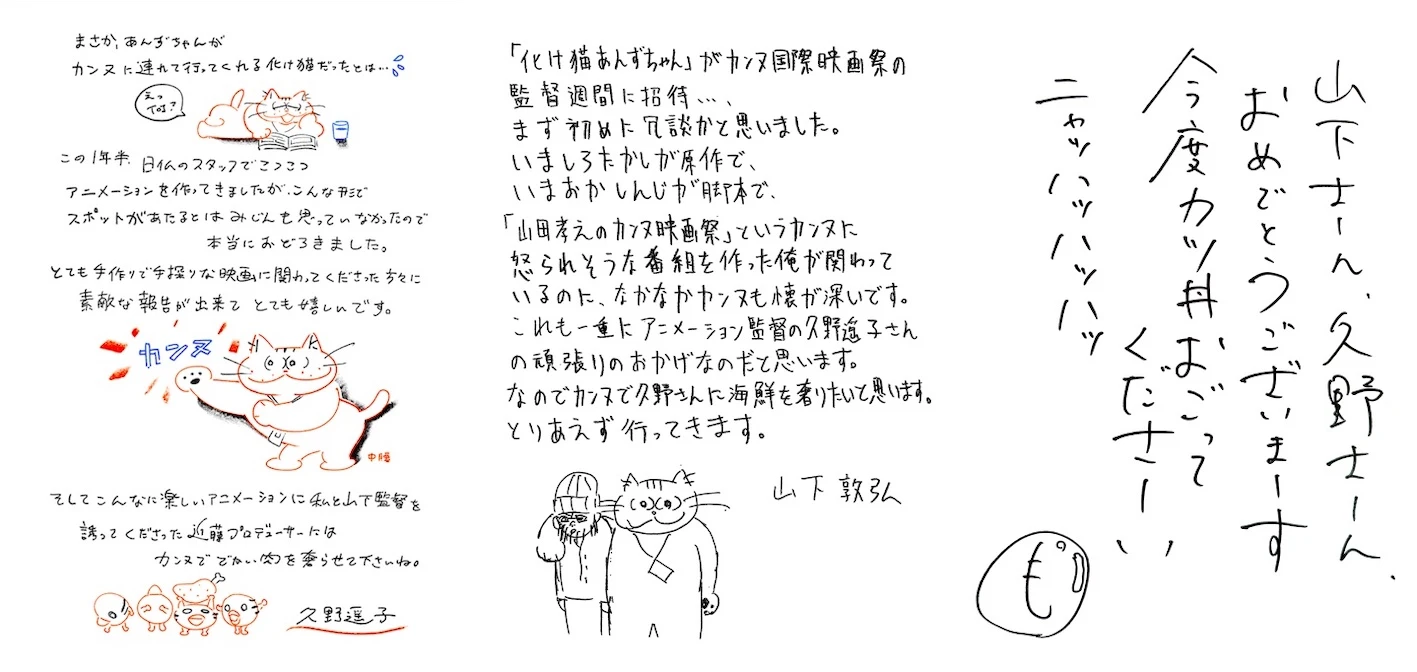 まさか、あんずちゃんが
カンヌに連れて行ってくれる化け猫だったとは…
えっ
てなに?
この1年半、日仏のスタッフでこつこつ
アニメーションを作ってきましたが、こんな形で
スポットがあたるとはみじんも思っていなかったので
本当におどろきました。
とても手作りで手探りな映画に関わってくださった方々に
素敵な報告が出来てとても嬉しいです。
カンヌ
中腰
そしてこんなに楽しいアニメーションに私と山下監督を
誘ってくださった近藤プロデューサーには
カンヌででかい肉を奢らせて下さいね。
久野遥子
「化け猫あんずちゃん」がカンヌ国際映画祭の
監督週間に招待…、
まず初めに冗談かと思いました。
いましろたかしが原作で、
いまおかしんじが脚本で、
「山田孝之のカンヌ映画祭」というカンヌに
怒られそうな番組を作った俺が関わって
いるのに、なかなかカンヌも懐が深いです。
これも一重にアニメーション監督の久野遥子さん
の頑張りのおかげなのだと思います。
なのでカンヌで久野さんに海鮮を奢りたいと思います。
とりあえず行ってきます。
山下敦弘
山下さーん、久野さーん、
おめでとうございまーす
今度カツ丼おごって
くださーい
ニャッハッハッハッ
も